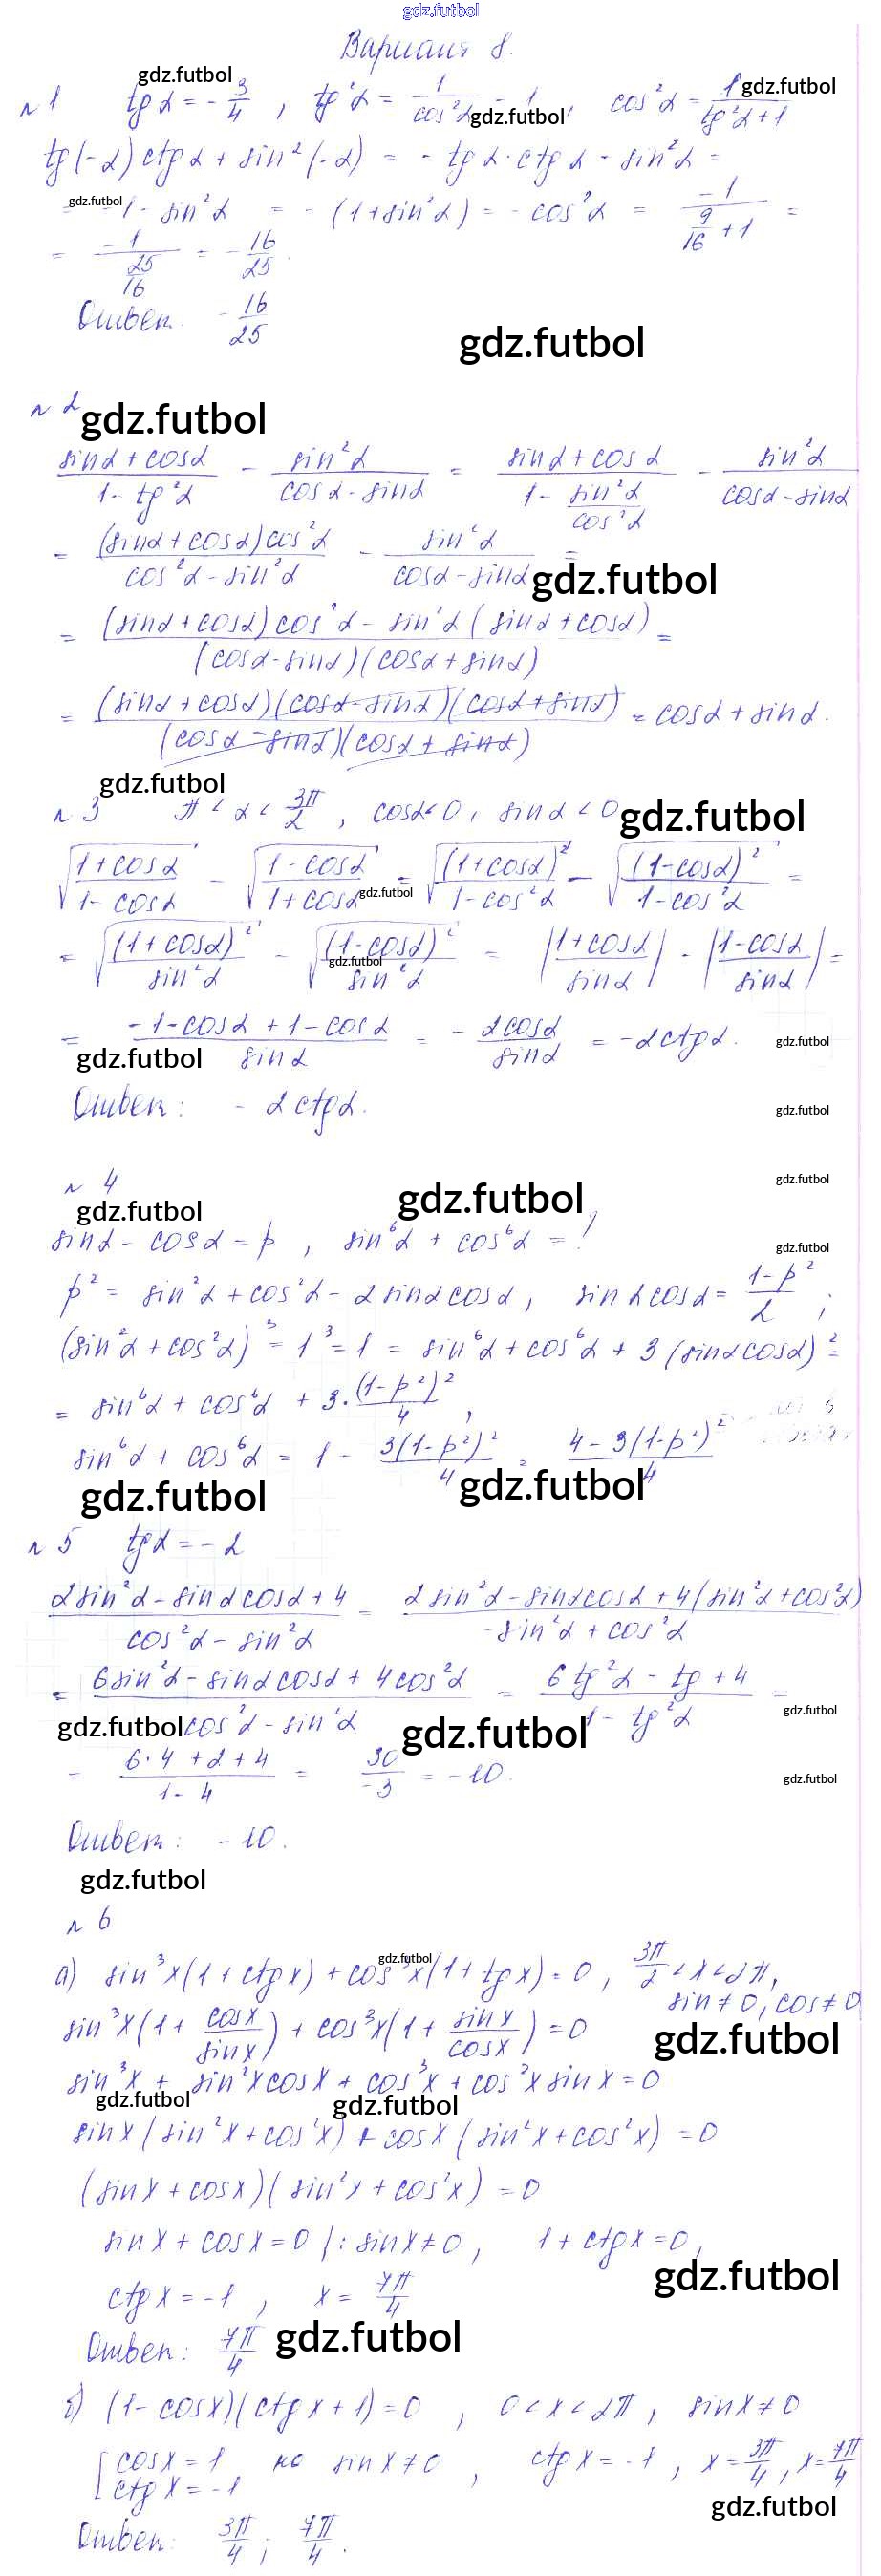 gdz.futbol
Вариант 8.
gdz.futbol
№1 tg α = - 3/4 , tg²α = 1/cos²α - 1, cos²α = 1/(tg²α + 1)
gdz.futbol gdz.futbol
tg(-α) ctg α + sin²(-α) = - tg α · ctg α - sin²α =
gdz.futbol
= -1 - sin²α = - (1 + sin²α) = - cos²α = -1/(9/16 + 1) =
= -1/(25/16) = - 16/25.
Ответ. - 16/25
gdz.futbol
№2 gdz.futbol
(sin α + cos α)/(1 - tg²α) - sin²α/(cos α - sin α) = (sin α + cos α)/(1 - sin²α/cos²α) - sin²α/(cos α - sin α)
= (sin α + cos α)cos²α/(cos²α - sin²α) - sin²α/(cos α - sin α) =
gdz.futbol
= ((sin α + cos α)cos²α - sin²α(sin α + cos α))/((cos α - sin α)(cos α + sin α)) =
= (sin α + cos α)(cos α - sin α)(cos α + sin α)/((cos α - sin α)(cos α + sin α)) = cos α + sin α.
gdz.futbol
№3 π < α < 3π/2 , cos α < 0, sin α < 0
gdz.futbol
√((1 + cos α)/(1 - cos α)) - √((1 - cos α)/(1 + cos α)) = √((1 + cos α)²/(1 - cos²α)) - √((1 - cos α)²/(1 - cos²α)) =
gdz.futbol
= √((1 + cos α)²/sin²α) - √((1 - cos α)²/sin²α) = |(1 + cos α)/sin α| - |(1 - cos α)/sin α| =
gdz.futbol
= (-1 - cos α + 1 - cos α)/sin α = - 2cos α/sin α = -2ctg α.
gdz.futbol gdz.futbol
Ответ: - 2 ctg α.
gdz.futbol
№ 4
gdz.futbol
gdz.futbol gdz.futbol
sin α - cos α = p , sin⁶α + cos⁶α = ?
gdz.futbol
p² = sin²α + cos²α - 2 sin α cos α, sin α cos α = (1 - p²)/2 ;
(sin²α + cos²α)³ = 1³ = 1 = sin⁶α + cos⁶α + 3 (sin α cos α)² =
= sin⁶α + cos⁶α + 3 · (1 - p²)²/4 ,
sin⁶α + cos⁶α = 1 - 3(1 - p²)²/4 = (4 - 3(1 - p²)²)/4
gdz.futbol gdz.futbol
№ 5 tg α = - 2
(2sin²α - sin α cos α + 4)/(cos²α - sin²α) = (2 sin²α - sin α cos α + 4(sin²α + cos²α))/(-sin²α + cos²α)
= (6sin²α - sin α cos α + 4cos²α)/(cos²α - sin²α) = (6 tg²α - tg + 4)/(1 - tg²α) =
gdz.futbol gdz.futbol gdz.futbol
= (6·4 + 2 + 4)/(1 - 4) = 30/-3 = -10.
gdz.futbol
Ответ: - 10.
gdz.futbol
№ 6
gdz.futbol
а) sin³x(1 + ctg x) + cos³x(1 + tg x) = 0 , 3π/2 < x < 2π,
sin ≠ 0, cos ≠ 0
sin³x(1 + cos x/sin x) + cos³x(1 + sin x/cos x) = 0
gdz.futbol
sin³x + sin²x cos x + cos³x + cos²x sin x = 0
gdz.futbol gdz.futbol
sin x (sin²x + cos²x) + cos x (sin²x + cos²x) = 0
(sin x + cos x)(sin²x + cos²x) = 0
sin x + cos x = 0 |: sin x ≠ 0, 1 + ctg x = 0,
gdz.futbol
ctg x = -1 , x = 7π/4
Ответ: 7π/4 gdz.futbol
б) (1 - cos x)(ctg x + 1) = 0 , 0 < x < 2π , sin x ≠ 0
[cos x = 1 но sin x ≠ 0 , ctg x = -1 , x = 3π/4, x = 7π/4
ctg x = -1
gdz.futbol
Ответ: 3π/4 ; 7π/4.